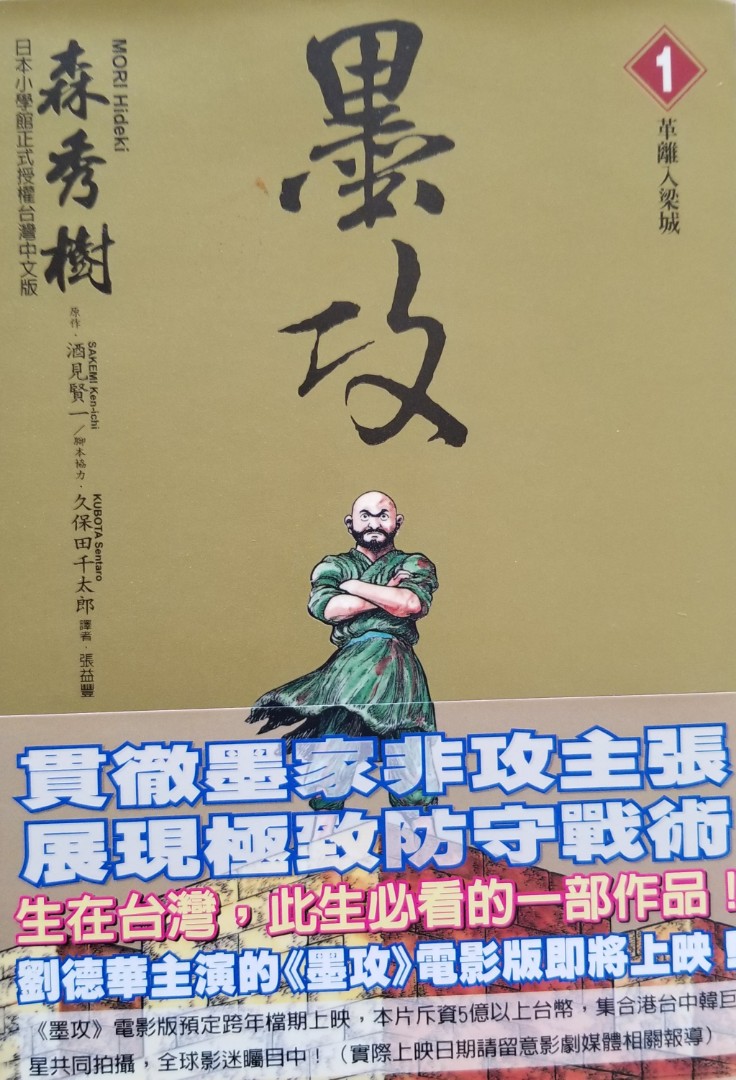 1
革離入梁城
墨攻
MORI Hideki
森秀樹
日本小學館正式授權台灣中文版
原作．酒見賢一／腳本協力．久保田千太郎 譯者．張益豐
SAKEMI Ken-ichi
KUBOTA Sentaro
貫徹墨家非攻主張
展現極致防守戰術
生在台灣，此生必看的一部作品！
劉德華主演的《墨攻》電影版即將上映！
《墨攻》電影版預定跨年檔期上映，本片斥資5億以上台幣，集合港台中韓巨
星共同拍攝，全球影迷矚目中！（實際上映日期請留意影劇媒體相關報導）